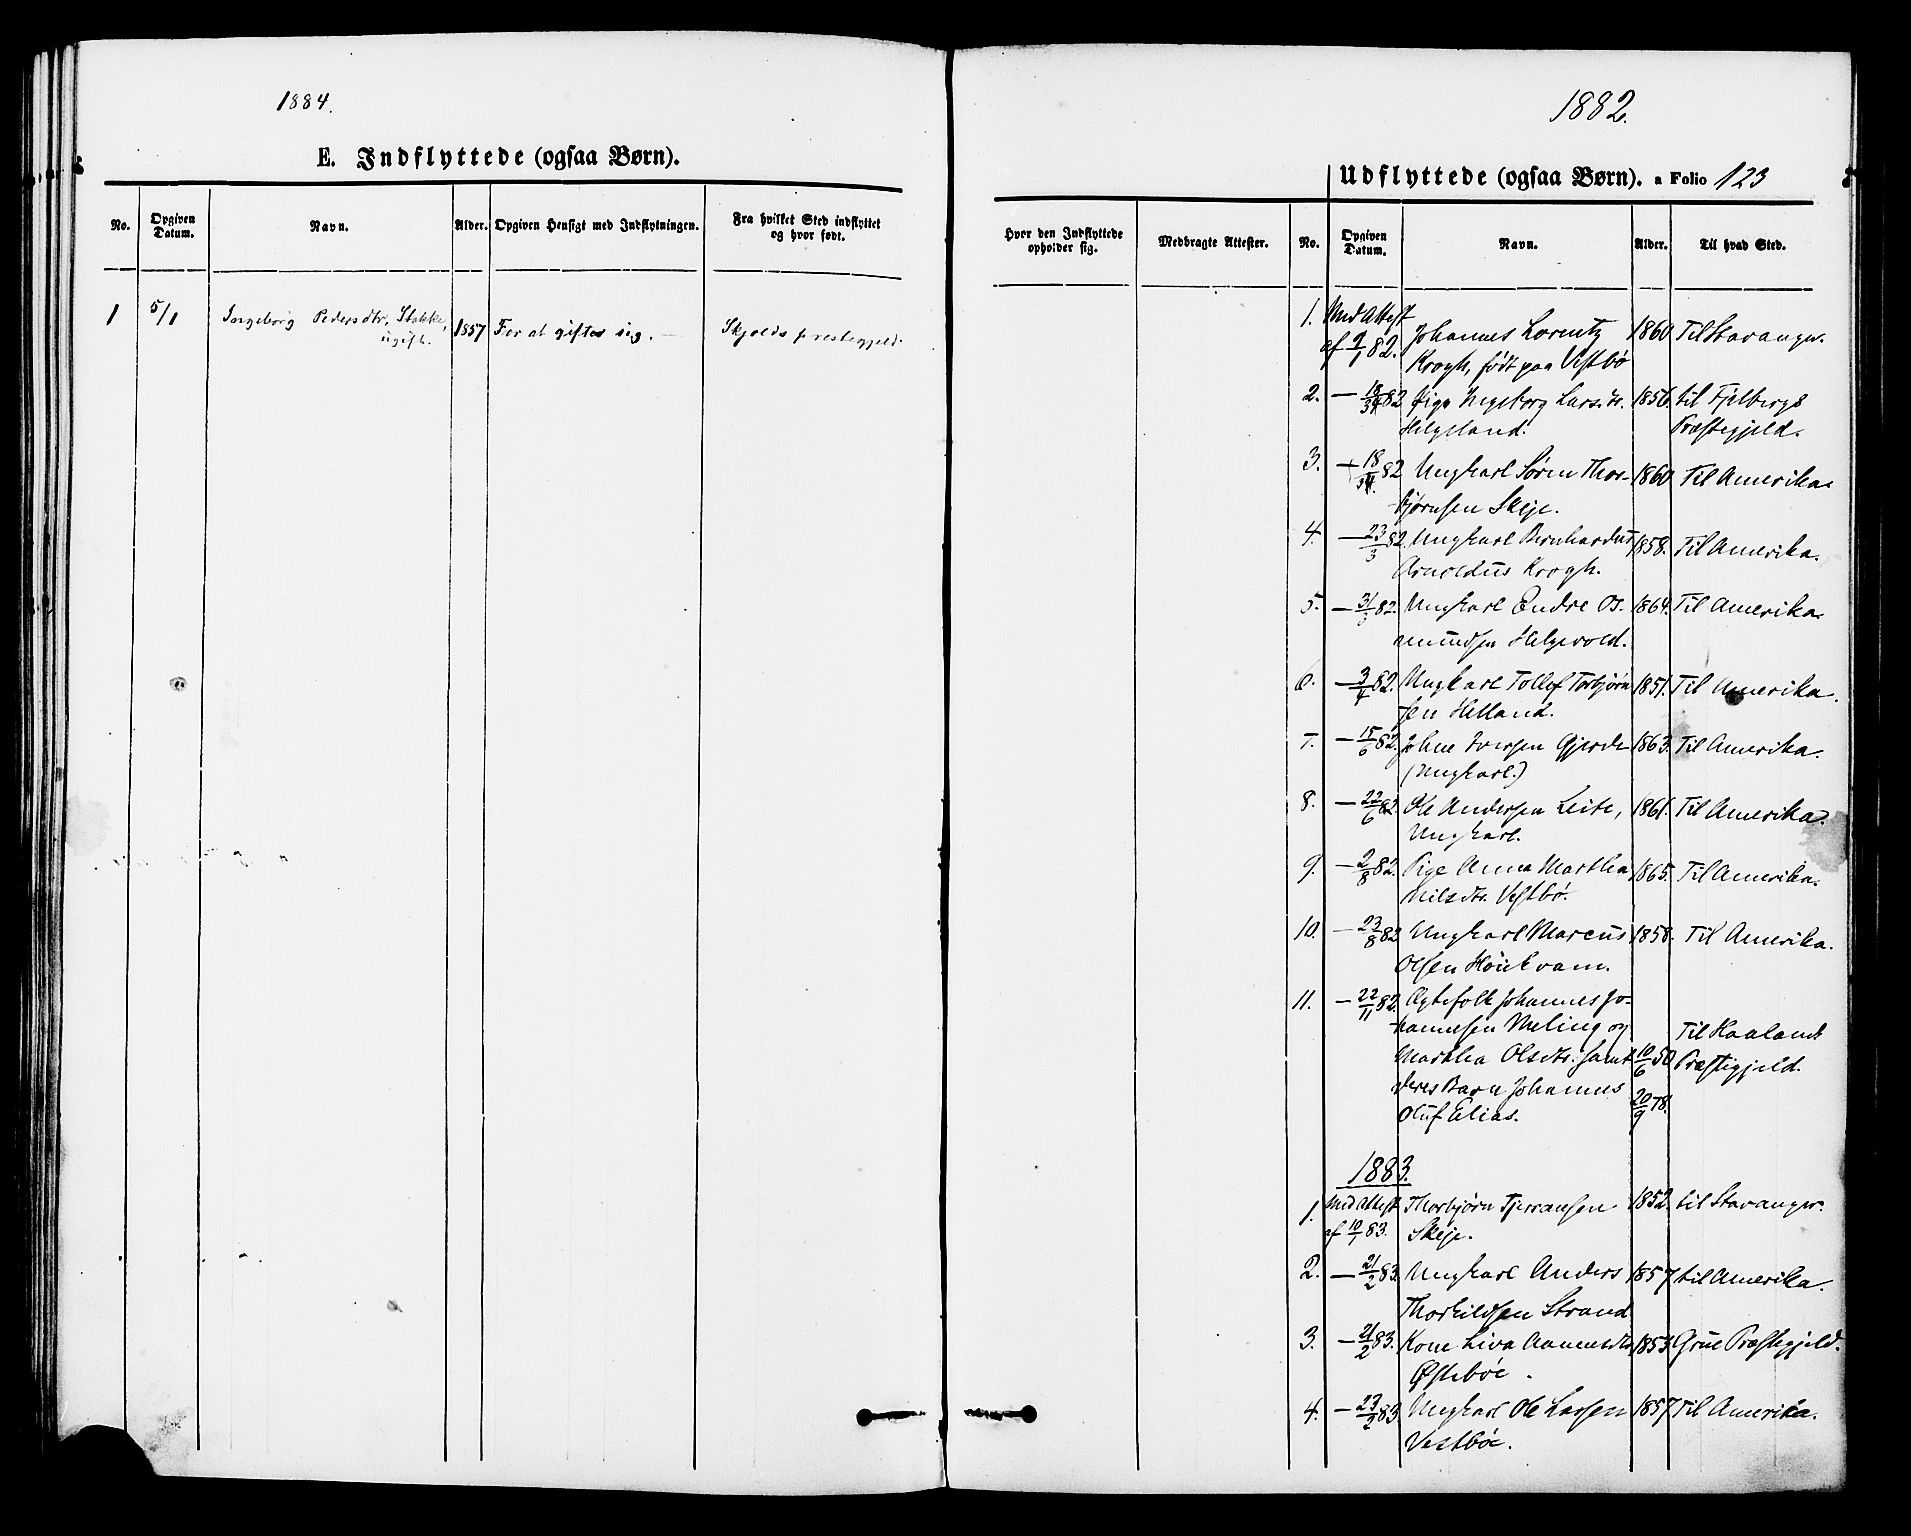 1884.
E. Indflyttede (ogsaa Børn).
No.
Opgiven Datum.
Navn.
Alder.
Opgiven Hensigt med Indflytningen.
Fra hvilket Sted indflyttet og hvor født.
1 5/1 Ingeborg Pedersdtr. Stakke, 1857 For at giftes sig. — Skjolds prestegjeld.
ugift.
1882.
Udflyttede (ogsaa Børn). a Folio 123
Hvor den Indflyttede opholder sig.
Medbragte Attester.
No.
Opgiven Datum.
Navn.
Alder.
Til hvad Sted.
1. Med Attest Johannes Lorentz 1860 Til Stavanger.
af 9/1 82. Krogh, født paa Vestbø
2. — 18/3 82 Pige Ingeborg Larsdtr. 1856. til Fjelbergs
Helgeland. Præstegjeld.
3. — 18/3 82 Ungkarl Søren Thor- 1860 Til Amerika.
bjørnsen Skeje.
4. — 23/3 82 Ungkarl Bernhardus 1858. Til Amerika.
Arnoldus Krogh.
5. — 31/3 82. Ungkarl Endre Os- 1864. Til Amerika
mundsen Helgevold.
6. — 3/4 82. Ungkarl Tollef Torbjørn 1851. Til Amerika.
sen Helland.
7. — 15/6 82. Johne Iversen Gjerde 1863. Til Amerika.
(Ungkarl.)
8. — 22/6 82. Ole Andersen Leite, 1861. Til Amerika.
Ungkarl.
9. — 2/8 82. Pige Anna Martha 1865. Til Amerika.
Nilsdtr. Vestbø.
10. — 23/8 82 Ungkarl Marcus 1858. Til Amerika.
Olsen Høiekvam.
11. — 22/11 82. Ægtefolk Johannes Jo-
hannesen Meling og Til Haalands
Martha Olsdtr. samt 10/6 50 Præstegjeld.
deres Barn Johannes
Oluf Elias. 20/9 78.
1883.
1. Med Attest Thorbjørn Tjerransen 1852. til Stavanger.
af 10/1 83. Skeje.
2. — 21/2 83. Ungkarl Anders 1857 til Amerika.
Thorkildsen Strand
3. — 21/2 83. Kone Liva Aanensdtr. 1853 Grue Præstegjeld.
Østebøe.
4. — 23/2 83 Ungkarl Ole Larsen 1857 Til Amerika.
Vestbøe.